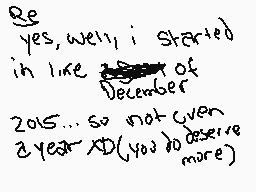 Re
yes, well, i started
in like of
December
2015... so not even
a year XD (you do deserve
more)